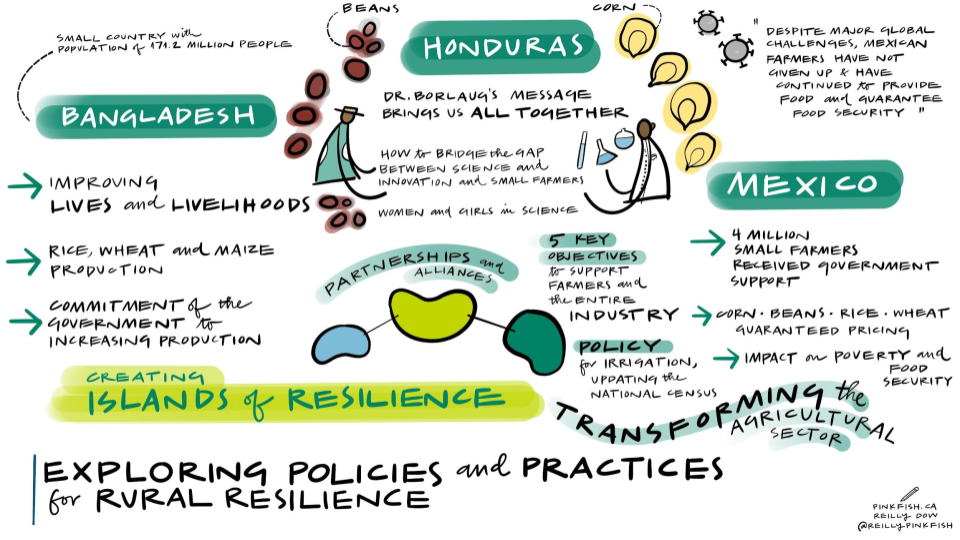 SMALL COUNTRY with
POPULATION of 171.2 MILLION PEOPLE
BANGLADESH
→ IMPROVING
LIVES and LIVELIHOODS
→ RICE, WHEAT and MAIZE
PRODUCTION
→ COMMITMENT of the
GOVERNMENT to
INCREASING PRODUCTION
BEANS
CORN
HONDURAS
DR. BORLAUG'S MESSAGE
BRINGS US ALL TOGETHER
HOW to BRIDGE the GAP
BETWEEN SCIENCE and
INNOVATION and SMALL FARMERS
WOMEN and GIRLS in SCIENCE
PARTNERSHIPS and
ALLIANCES
5 KEY
OBJECTIVES
to SUPPORT
FARMERS and
the ENTIRE
INDUSTRY
POLICY
for IRRIGATION,
UPDATING the
NATIONAL CENSUS
" DESPITE MAJOR GLOBAL
CHALLENGES, MEXICAN
FARMERS HAVE NOT
GIVEN UP & HAVE
CONTINUED to PROVIDE
FOOD and GUARANTEE
FOOD SECURITY "
MEXICO
→ 4 MILLION
SMALL FARMERS
RECEIVED GOVERNMENT
SUPPORT
→ CORN · BEANS · RICE · WHEAT
GUARANTEED PRICING
→ IMPACT on POVERTY and
FOOD
SECURITY
CREATING
ISLANDS of RESILIENCE
TRANSFORMING the
AGRICULTURAL
SECTOR
EXPLORING POLICIES and PRACTICES
for RURAL RESILIENCE
PINKFISH.CA
REILLY DOW
@REILLYPINKFISH